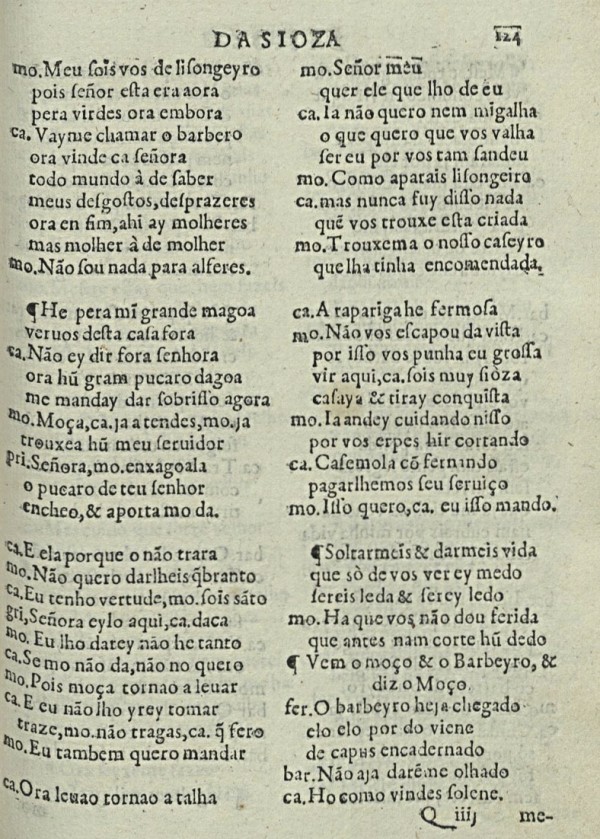 DA SIOZA
124
mo.Meu ſois vos de liſongeyro
pois señor eſta era aora
pera virdes ora embora
ca. Vayme chamar o barbero
ora vinde ca señora
todo mundo à de ſaber
meus deſgoſtos,deſprazeres
ora en fim,ahi ay molheres
mas molher â de molher
mo.Não ſou nada para alferes.
¶He pera mĩ grande magoa
veruos deſta caſa fora
ca.Não ey dir fora ſenhora
ora hũ gram pucaro dagoa
me manday dar ſobriſſo agora
mo.Moça,ca.ja atendes,mo.ja
trouxea hũ meu ſeruidor
pri.Señora,mo.enxagoala
o pucaro de teu ſenhor
encheo,& aporta mo da.
ca.E ela porque o não trara
mo.Não quero darlheis q̃branto
ca.Eu tenho vertude,mo.ſois sãto
gri,Señora eylo aqui,ca.daca
mo. Eu lho darey não he tanto
ca.Se mo não da,não no quero
mo.Pois moça tornao a leuar
ca.E eu não lho yrey tomar
traze,mo.não tragas,ca. q̃ fero
mo.Eu tambem quero mandar
ca.Ora leuao tornao a talha
mo.Señor meu
quer ele que lho de eu
ca.Ia não quero nem migalha
o que quero que vos valha
ſer eu por vos tam ſandeu
mo.Como aparais liſongeiro
ca.mas nunca fuy diſſo nada
quẽ vos trouxe eſta criada
mo.Trouxema o noſſo caſeyro
que lha tinha encomendada.
ca.A rapariga he fermoſa
mo.Não vos eſcapou da viſta
por iſſo vos punha eu groſſa
vir aqui,ca.ſois muy ſiòza
caſaya & tiray conquiſta
mo.Ia andey cuidando niſſo
por vos erpes hir cortando
ca.Caſemola cõ fernando
pagarlhemos ſeu ſeruiço
mo.Iſſo quero,ca. eu iſſo mando.
¶Soltarmeis & darmeis vida
que sò de vos ver ey medo
ſereis leda & ſerey ledo
mo.Ha que vos não dou ferida
que antes nam corte hũ dedo
¶ Vem o moço & o Barbeyro, &
diz o Moço.
fer.O barbeyro heja chegado
elo elo por do viene
de capus encadernado
bar.Não aja darẽme olhado
ca.Ho como vindes ſolene.
Q iiij
me-